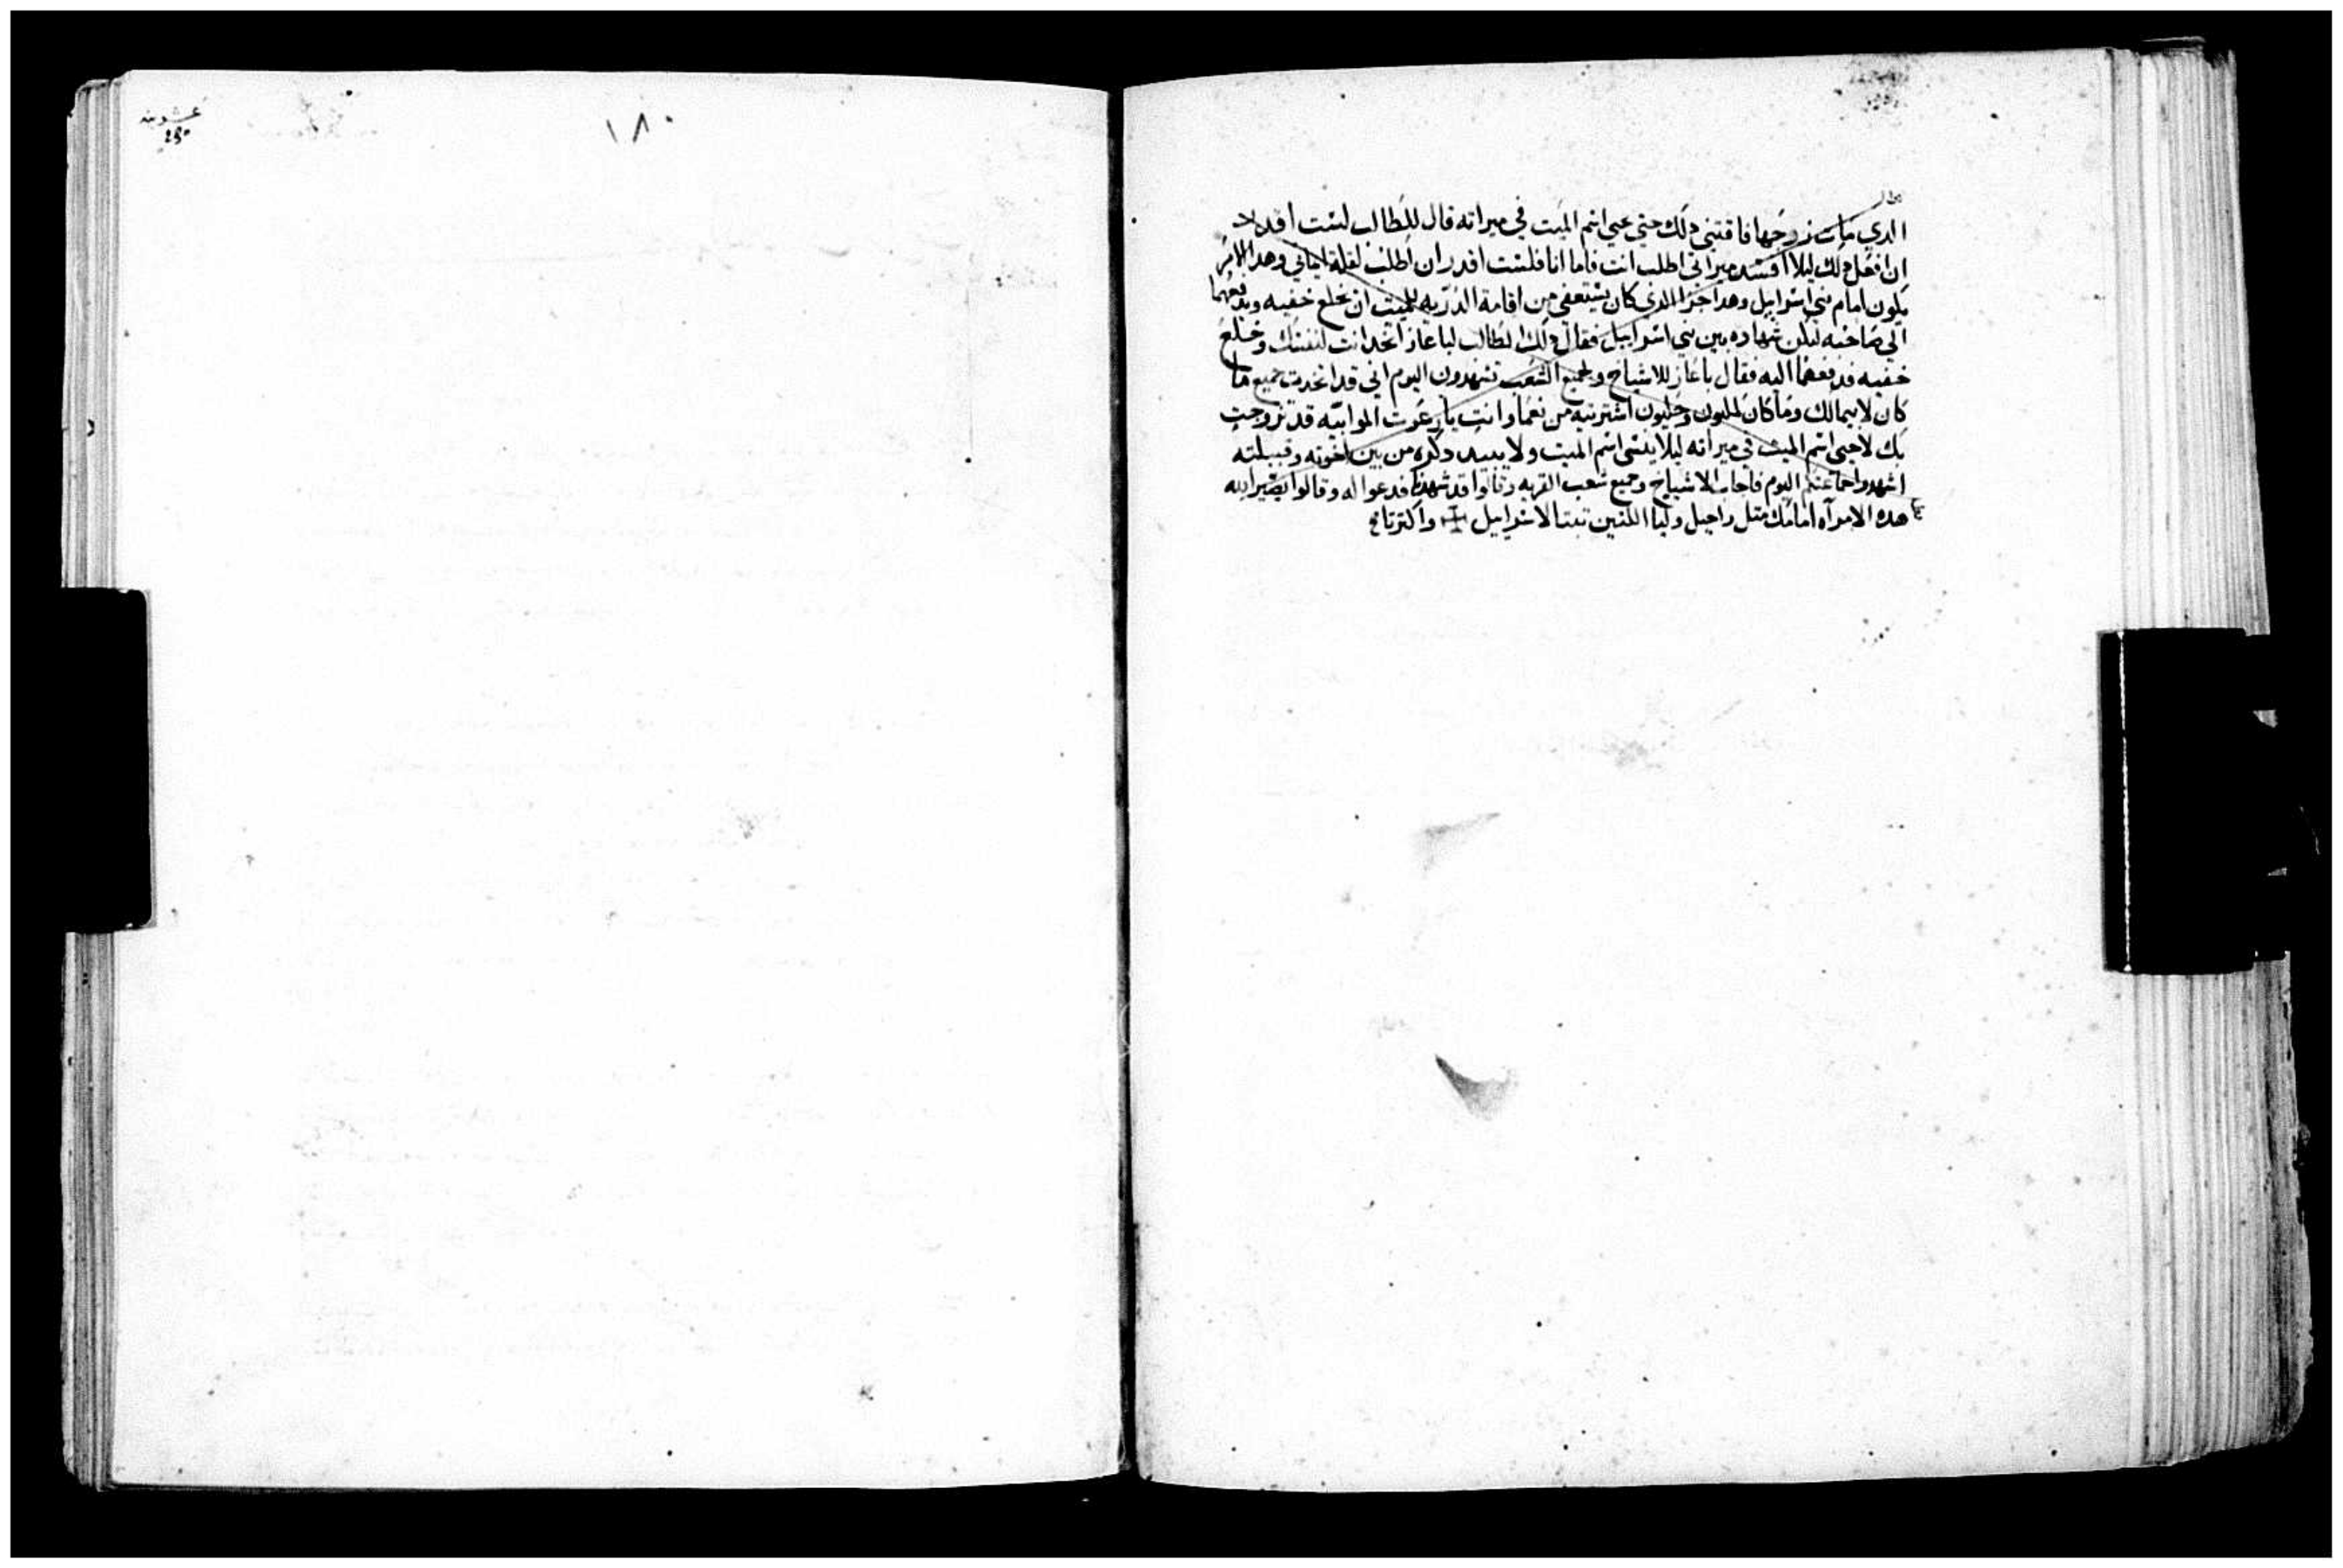 الدي مات زوجها فاقتني دلك حتي يحيي اسم الميت في ميراته قال للطالب لست اقدر
ان افعل دلك ليلا افسد ميراتي اطلب انت فاما انا فلست اقدر ان اطلب لقلة ايماني وهدا الامر
يكون امام بني اسراييل وهدا جزا الدي كان يستعفي من اقامة الدريه للميت ان يخلع خفيه ويدفعهما
الي صاحبه لتكن شهاده بين بني اسراييل فقال دلك الطالب لباعاز اتخد انت لنفسك وخلع
خفيه فدفعهما اليه فقال باعاز للاشياخ ولجميع الشعب تشهدون اليوم اني قد اتخدت جميع ما
كان لابيمالك وما كان لمليون وحليون اشتريته من نعما وانت يا رعوت الموابيه قد تزوجت
بك لاحيي اسم الميت في ميراته ليلا ينسي اسم الميت ولا دكره من بين اخوته وقبيلته
اشهدوا عندكم اليوم فاجاب الاشياخ وجميع شعب القريه وقالوا قد شهدنا فدعوا له وقالوا يصير الله
هده الامراه امامك متل راحيل وليا اللتين بنتا لاسراييل
١٨٠